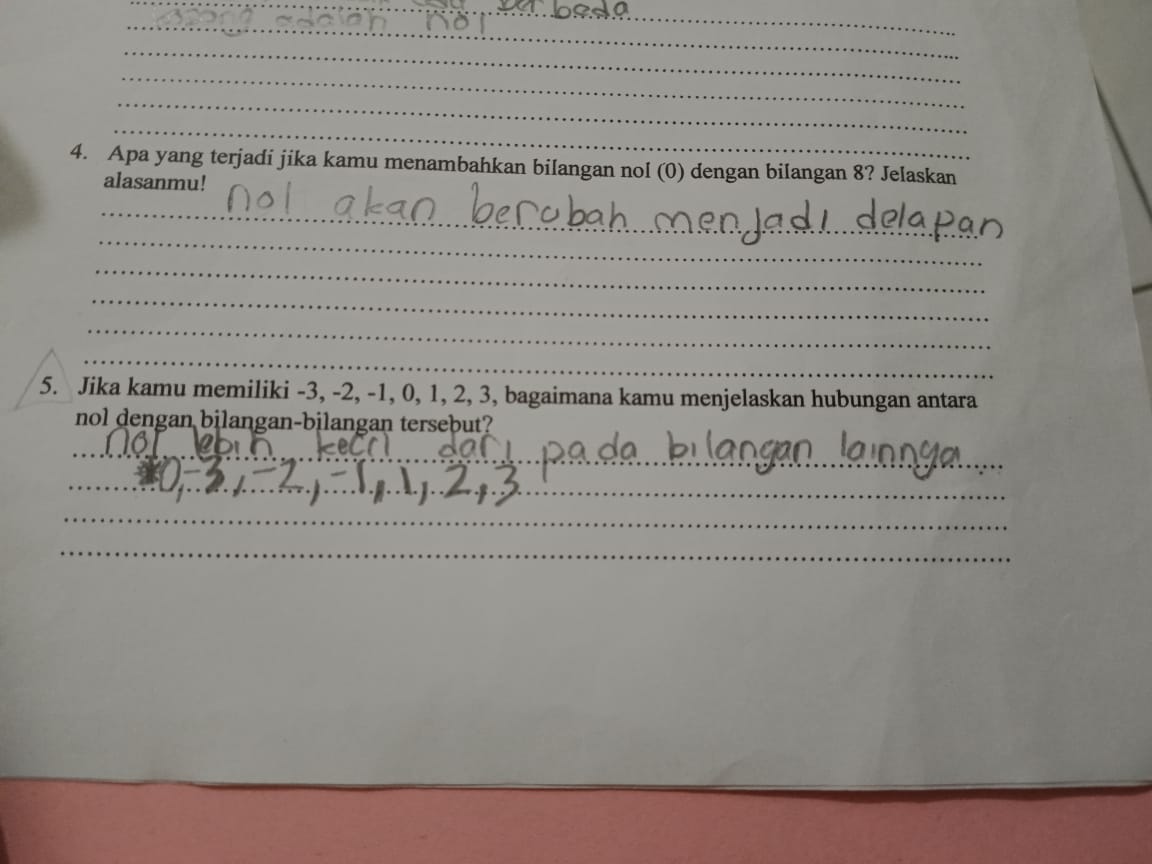 beda
adalah nol
4. Apa yang terjadi jika kamu menambahkan bilangan nol (0) dengan bilangan 8? Jelaskan
alasanmu!
nol akan berubah menjadi delapan
5. Jika kamu memiliki -3, -2, -1, 0, 1, 2, 3, bagaimana kamu menjelaskan hubungan antara
nol dengan bilangan-bilangan tersebut?
nol lebih kecil dari pada bilangan lainnya
0, -3, -2, -1, 1, 2, 3